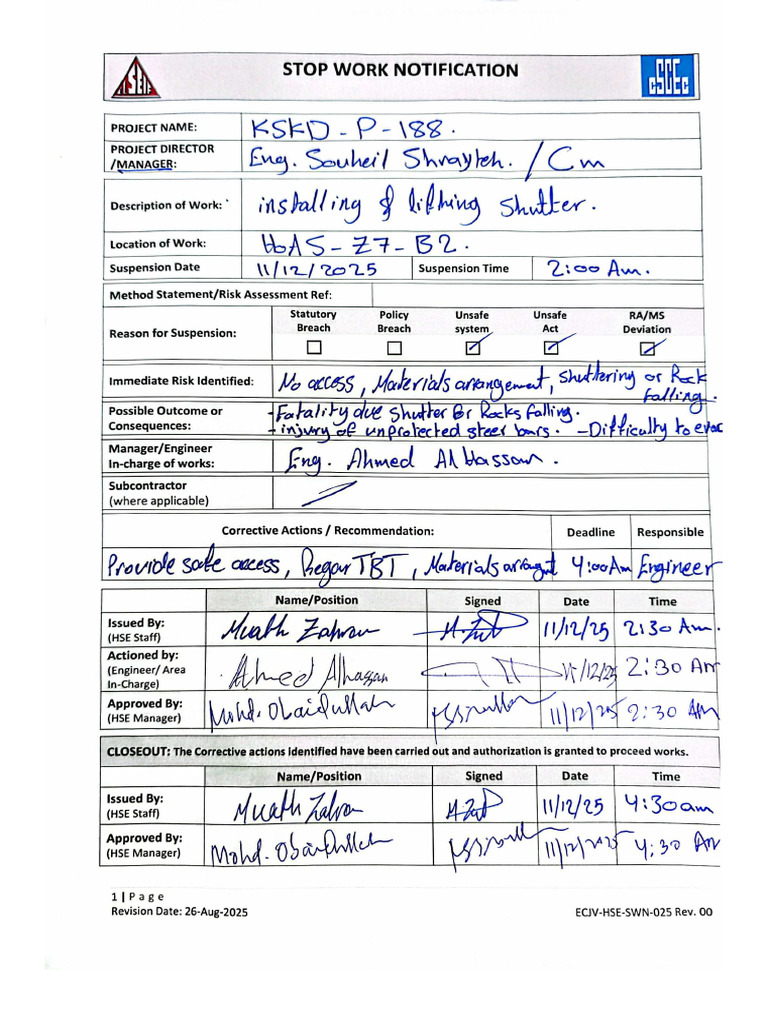 STOP WORK NOTIFICATION
CSCEC
PROJECT NAME: KSKD - P - 188.
PROJECT DIRECTOR /MANAGER: Eng. Souheil Shrayteh. / Cm
Description of Work: installing & lifthing shutter.
Location of Work: HAS - Z7 - B2.
Suspension Date 11/12/2025 Suspension Time 2:00 Am.
Method Statement/Risk Assessment Ref:
Reason for Suspension: Statutory Breach ☐ Policy Breach ☐ Unsafe system ☑ Unsafe Act ☑ RA/MS Deviation ☑
Immediate Risk Identified: No access, Materials arrangement, Shuttering or Rock
falling.
Possible Outcome or - Fatality due shutter or Rocks falling.
Consequences: - injury of unprotected steer bars. - Difficulty to evac
Manager/Engineer
In-charge of works: Eng. Ahmed Al Hassan.
Subcontractor
(where applicable)
Corrective Actions / Recommendation: Deadline Responsible
Provide safe access, TBT, Materials 4:00Am Engineer
Name/Position Signed Date Time
Issued By: (HSE Staff) Muath Zahran 11/12/25 2:30 Am.
Actioned by: (Engineer/ Area In-Charge) Ahmed Alhassan 11/12/25 2:30 AM
Approved By: (HSE Manager) Mohd. Obaidullah 11/12/25 2:30 AM
CLOSEOUT: The Corrective actions identified have been carried out and authorization is granted to proceed works.
Name/Position Signed Date Time
Issued By: (HSE Staff) Muath Zahran 11/12/25 4:30am
Approved By: (HSE Manager) Mohd. Obaidullah 11/12/25 4:30 AM
1 | Page
Revision Date: 26-Aug-2025 ECJV-HSE-SWN-025 Rev. 00